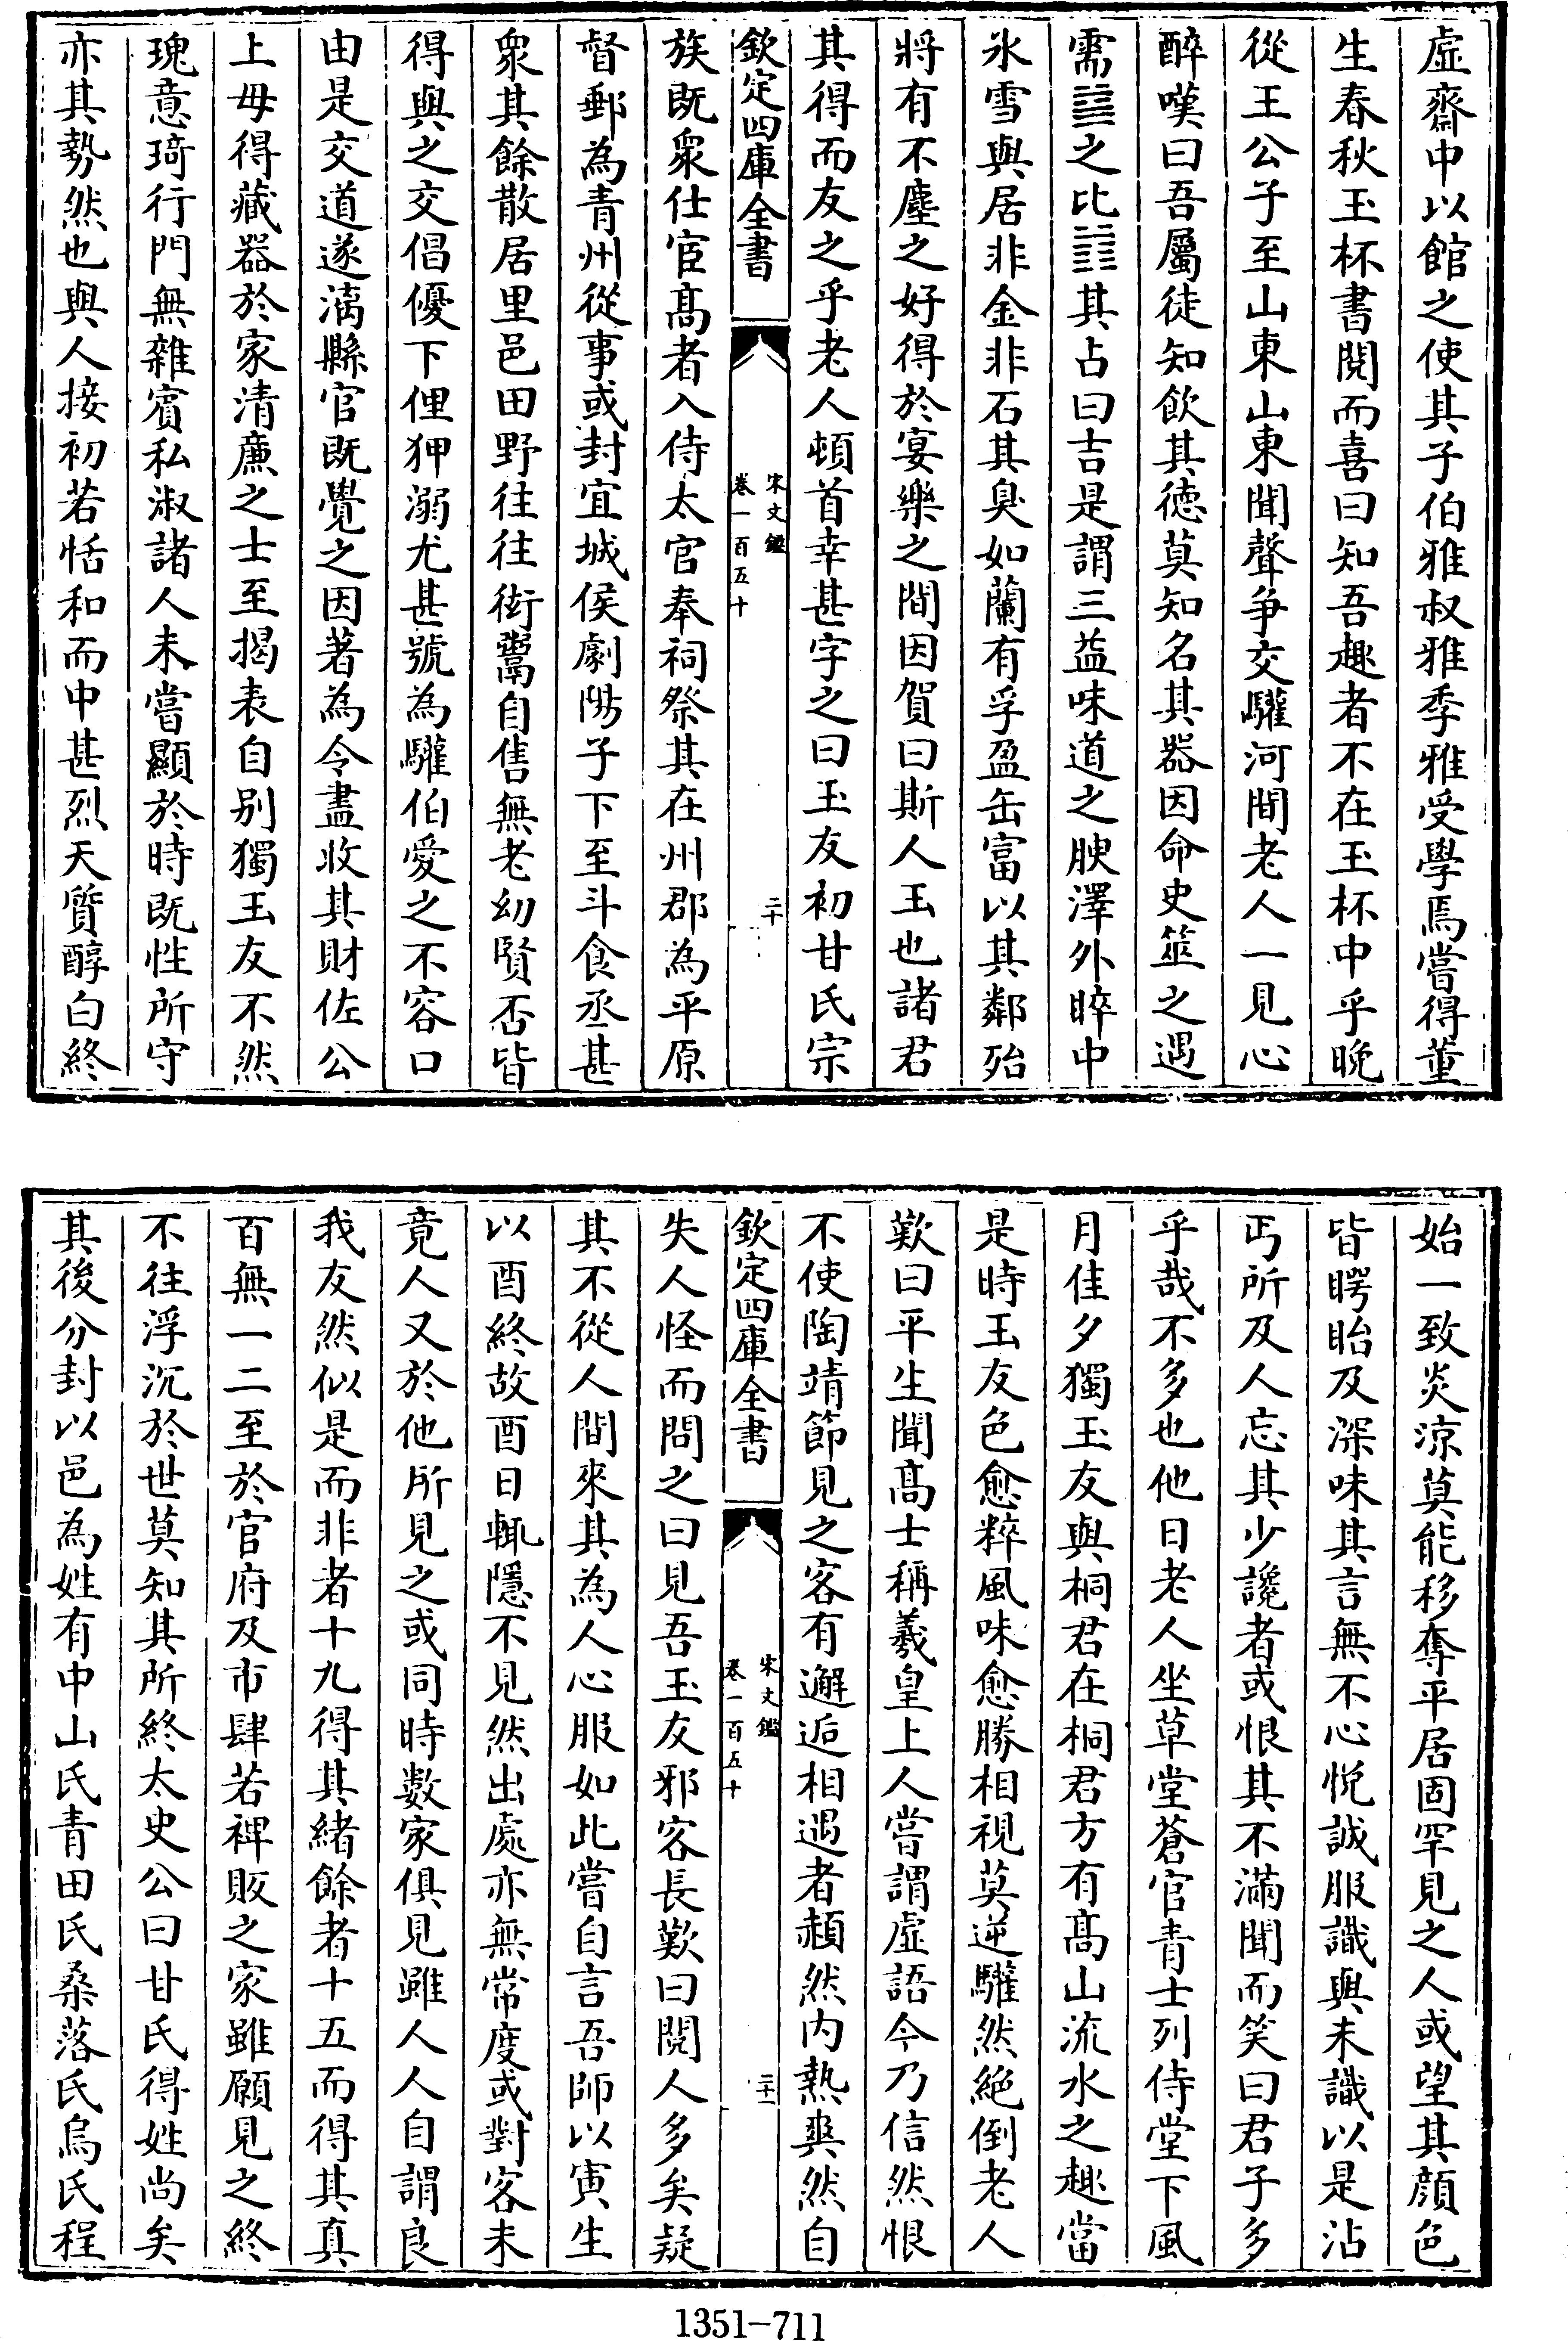 虛齋中以館之使其子伯雅叔雅季雅受學焉嘗得董
生春秋玉杯書閱而喜曰知吾趣者不在玉杯中乎晚
從王公子至山東山東聞聲爭交驩河間老人一見心
醉嘆曰吾屬徒知飲其徳莫知名其器因命史筮之遇
需䷄之比䷇其占曰吉是謂三益味道之腴澤外睟中
氷雪與居非金非石其臭如蘭有孚盈缶富以其鄰殆
將有不塵之好得於宴樂之間因賀曰斯人玉也諸君
其得而友之乎老人頓首幸甚字之曰玉友初甘氏宗
欽定四庫全書
宋文鑑
卷一百五十
二十
族既衆仕宦髙者入侍太官奉祠祭其在州郡為平原
督郵為青州從事或封宜城侯劇陽子下至斗食丞甚
衆其餘散居里邑田野往往衒鬻自售無老幼賢否皆
得與之交倡優下俚狎溺尤甚號為驩伯愛之不容口
由是交道遂漓縣官既覺之因著為令盡收其財佐公
上毋得藏器於家清廉之士至揭表自别獨玉友不然
瑰意琦行門無雜賓私淑諸人未嘗顯於時既性所守
亦其勢然也與人接初若恬和而中甚烈天質醇白終
始一致炎涼莫能移奪平居固罕見之人或望其顔色
皆瞪眙及深味其言無不心悅誠服識與未識以是沾
丐所及人忘其少讒者或恨其不滿聞而笑曰君子多
乎哉不多也他日老人坐草堂蒼官青士列侍堂下風
月佳夕獨玉友與桐君在桐君方有髙山流水之趣當
是時玉友色愈粹風味愈勝相視莫逆驩然絶倒老人
歎曰平生聞髙士稱羲皇上人嘗謂虛語今乃信然恨
不使陶靖節見之客有邂逅相遇者赬然内熱爽然自
欽定四庫全書
宋文鑑
卷一百五十
二十一
失人怪而問之曰見吾玉友邪客長歎曰閱人多矣疑
其不從人間來其為人心服如此嘗自言吾師以寅生
以酉終故酉日輒隱不見然出處亦無常度或對客未
竟人又於他所見之或同時數家俱見雖人人自謂良
我友然似是而非者十九得其緒餘者十五而得其真
百無一二至於官府及市肆若裨販之家雖願見之終
不往浮沉於世莫知其所終太史公曰甘氏得姓尚矣
其後分封以邑為姓有中山氏青田氏桑落氏烏氏程
1351-711